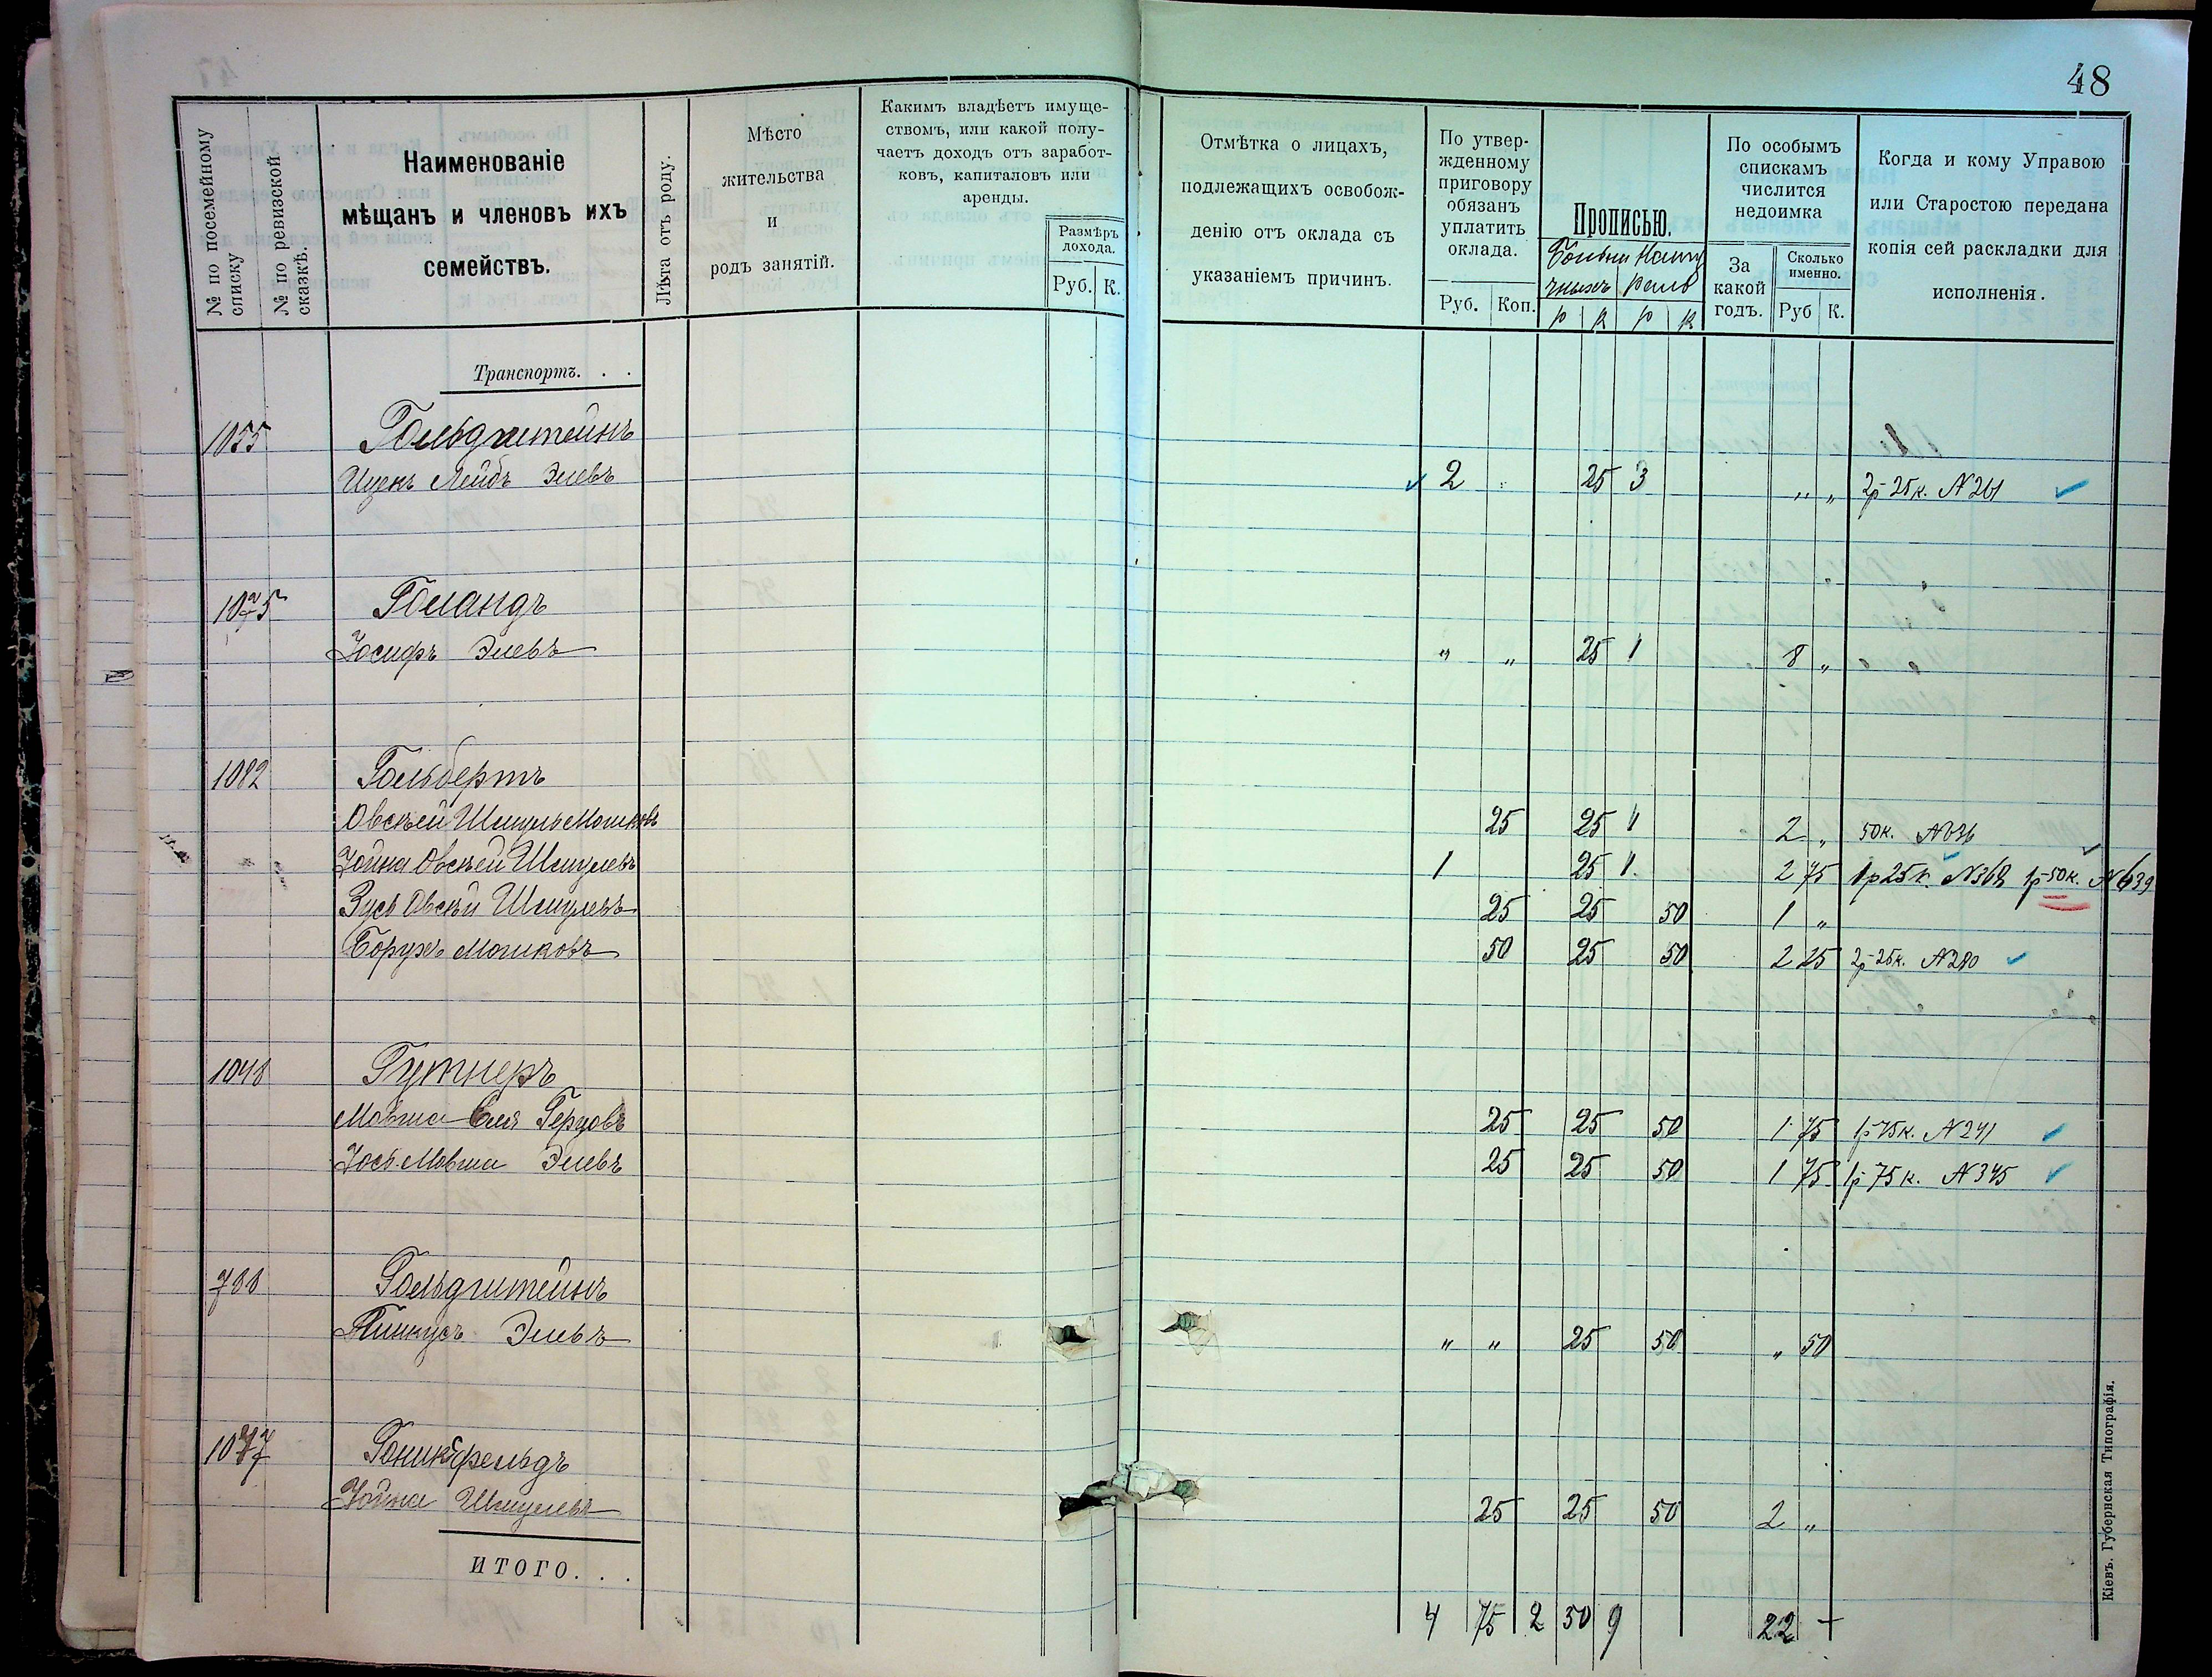 48
№ по посемейному списку
№ по ревизской сказкѣ.
Наименованіе
мѣщанъ и членовъ ихъ
семействъ.
Лѣта отъ роду.
Мѣсто
жительства
и
родъ занятій.
Какимъ владѣетъ имуще-
ствомъ, или какой полу-
чаетъ доходъ отъ заработ-
ковъ, капиталовъ или
аренды.
Размѣръ
дохода.
Руб. К.
Отмѣтка о лицахъ,
подлежащихъ освобож-
денію отъ оклада съ
указаніемъ причинъ.
По утвер-
жденному
приговору
обязанъ
уплатить
оклада.
Руб. Коп.
Прописью.
р к р к
По особымъ
спискамъ
числится
недоимка
За
какой
годъ.
Сколько
именно.
Руб К.
Когда и кому Управою
или Старостою передана
копія сей раскладки для
исполненія.
Транспортъ. . .
1055 Гольдштейнъ
Ицекъ Лейбъ Элевъ 2 " 25 3 " " 2р 25к. №261
1075 Голандъ
Іосифъ Элевъ " " 25 1 8 " " "
1082 Гольбертъ
Овсѣй Шмуль Мошковъ 25 25 1 2 " 50к.
Іойна Овсѣй Шмулевъ 1 25 1 2 75 1р 25к. №368 1р 50к. №639
Зусь Овсѣй Шмулевъ 25 25 50 1 "
Борухъ Мошковъ 50 25 50 2 25 2р 25к. №280
1048 Гутнеръ
Мовша Еля Герцовъ 25 25 50 1 75 1р 75к. №241
Іось Мовша Элевъ 25 25 50 1 75 1р 75к. №345
788 Гольдштейнъ
Пинкусъ Элевъ " " 25 50 " 50
1077 Гоникфельдъ
Іойна Шмулевъ 25 25 50 2 "
ИТОГО. . .
4 75 2 50 9 22 -
Кіевъ. Губернская Типографія.